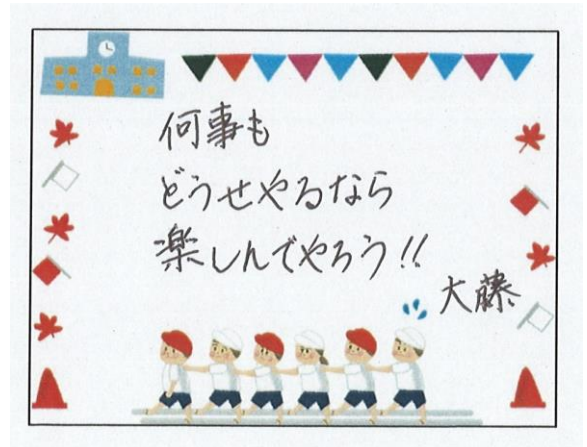 何事も
どうせやるなら
楽しんでやろう!!
大藤